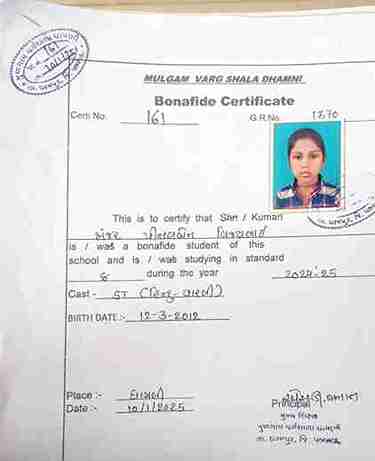 161
10/1/25
MULGAM VARG SHALA DHAMNI
Bonafide Certificate
Certi No. 161 G.R.No. 1870
This is to certify that Shri / Kumari
is / was a bonafide student of this
school and is / was studying in standard
8 during the year 2024-25
Cast :- ST (હિન્દુ-વારલી)
BIRTH DATE :- 12-3-2012
Place :- ધામણી
Date :- 10/1/2025
Principal
મુખ્ય શિક્ષક